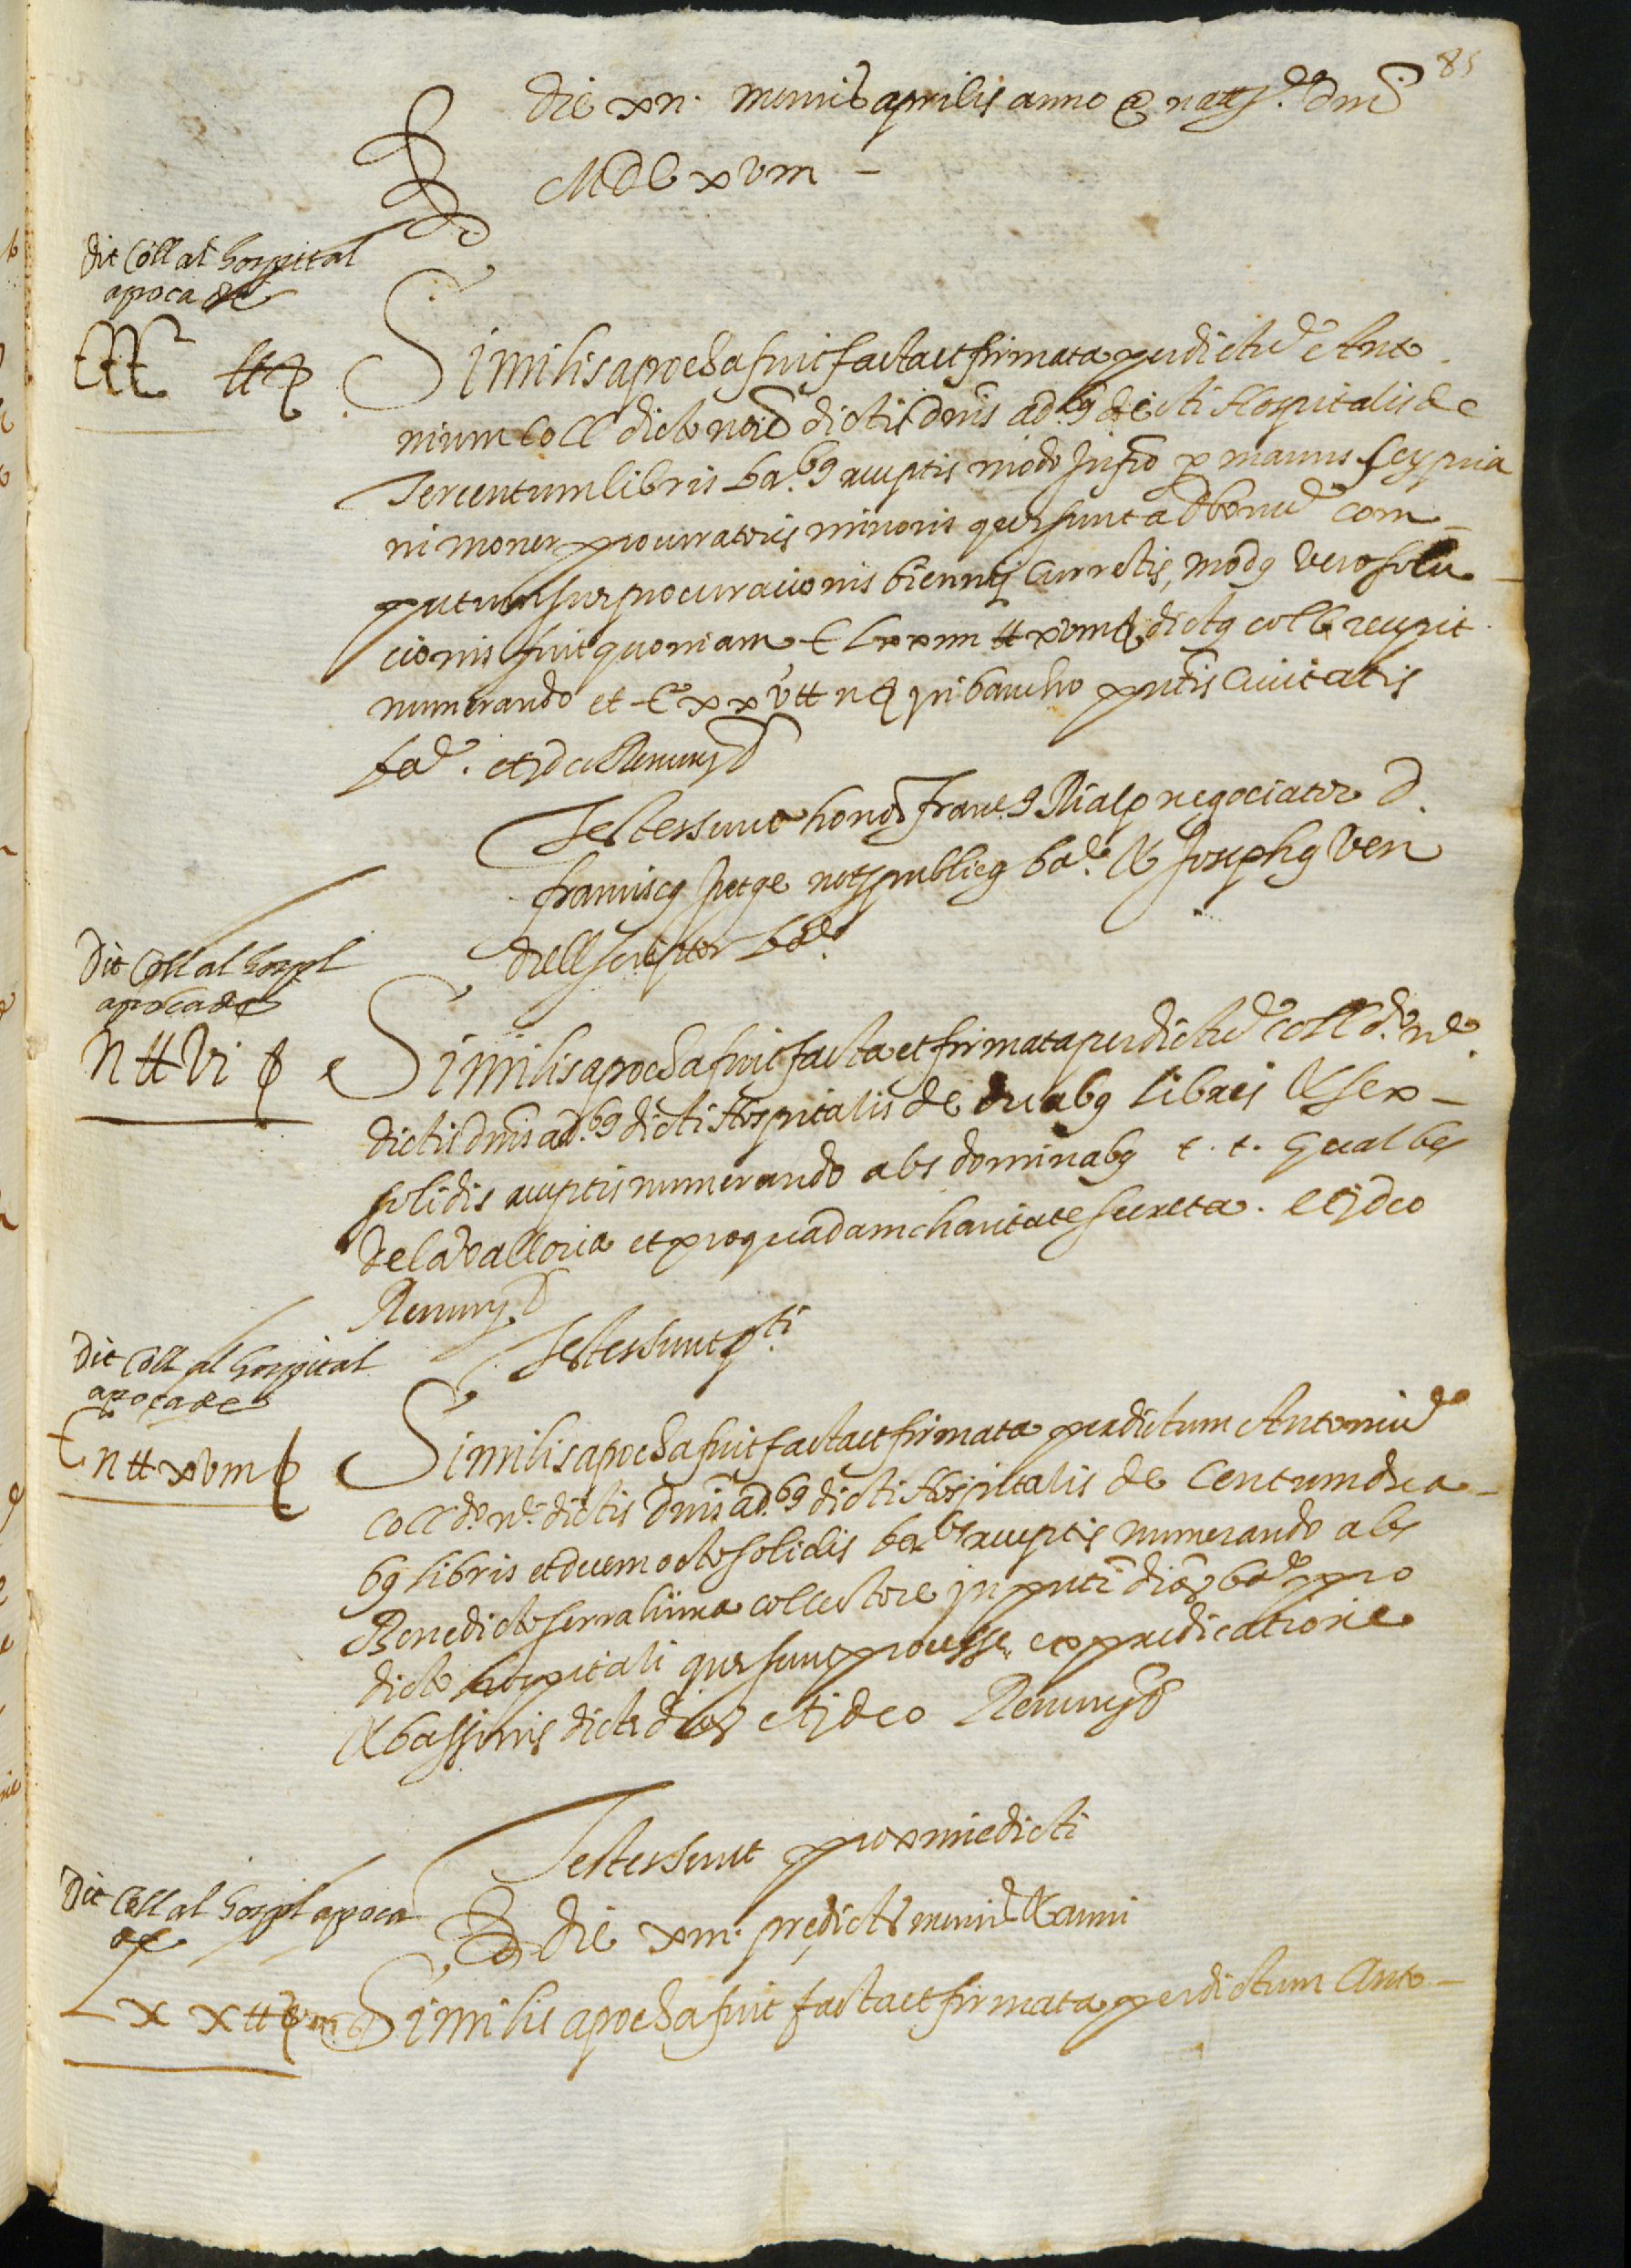 85
Die xii. mensis aprilis anno a natte. dni
MDCxviii –
Dit Coll al hospital
apoca de
CCC ₶
Similis apocha fuit facta et firmata per dictu Anto
nium Coll dicto noie dictis dnis adbus dicti Hospitalis de
Tercentum libris ba.bus acceptis modo infro per manus Scypria
ni moner procuratoris minoris que sunt ad bonu com
putum sue procuracionis biennij Currentis, modus vero solu
cionis fuit quoniam CLxxiiii ₶ xviii dictus coll recepit
numerando et Cxxv ₶ ii in bancho pntis Civitatis
bae. et ideo Renuns
Testes sunt honor. Franc.us Rialp negociator
Franciscus Petge nots publicus bae. & Josephus Ven
drell scriptor bae
Dit Coll al hospl
apoca de
ii ₶ vi
Similis apocha fuit facta et firmata per dictu Coll d. ne.
dictis dnis ad.bus dicti Hospitalis de duabus libris & sex
solidis acceptis numerando abs dominabus t. t. Gualbes
de la valloria et pro quadam charitate secreta. et ideo
Renuns
Testes sunt p.ti
Dit Coll al hospital
apoca de
Cii ₶ xviii
Similis apocha fuit facta et firmata per dictum Antoniu
Coll do. ne. dictis dnis ad.bus dicti Hospitalis de Centum dua
bus libris et decem octo solidis ba.bus acceptis numerando abs
Benedicto serralima collectore in pnti dioc. bae. pro
dicto hospitali que sunt processe ex predicatione
& bassinis dicte dioc. et ideo Renuns
Testes sunt proxime dicti
Die xiii. predicti mensis & anni
Dit Coll al hospl apoca
de
Lxx ₶
Similis apocha fuit facta et firmata per dictum Anto